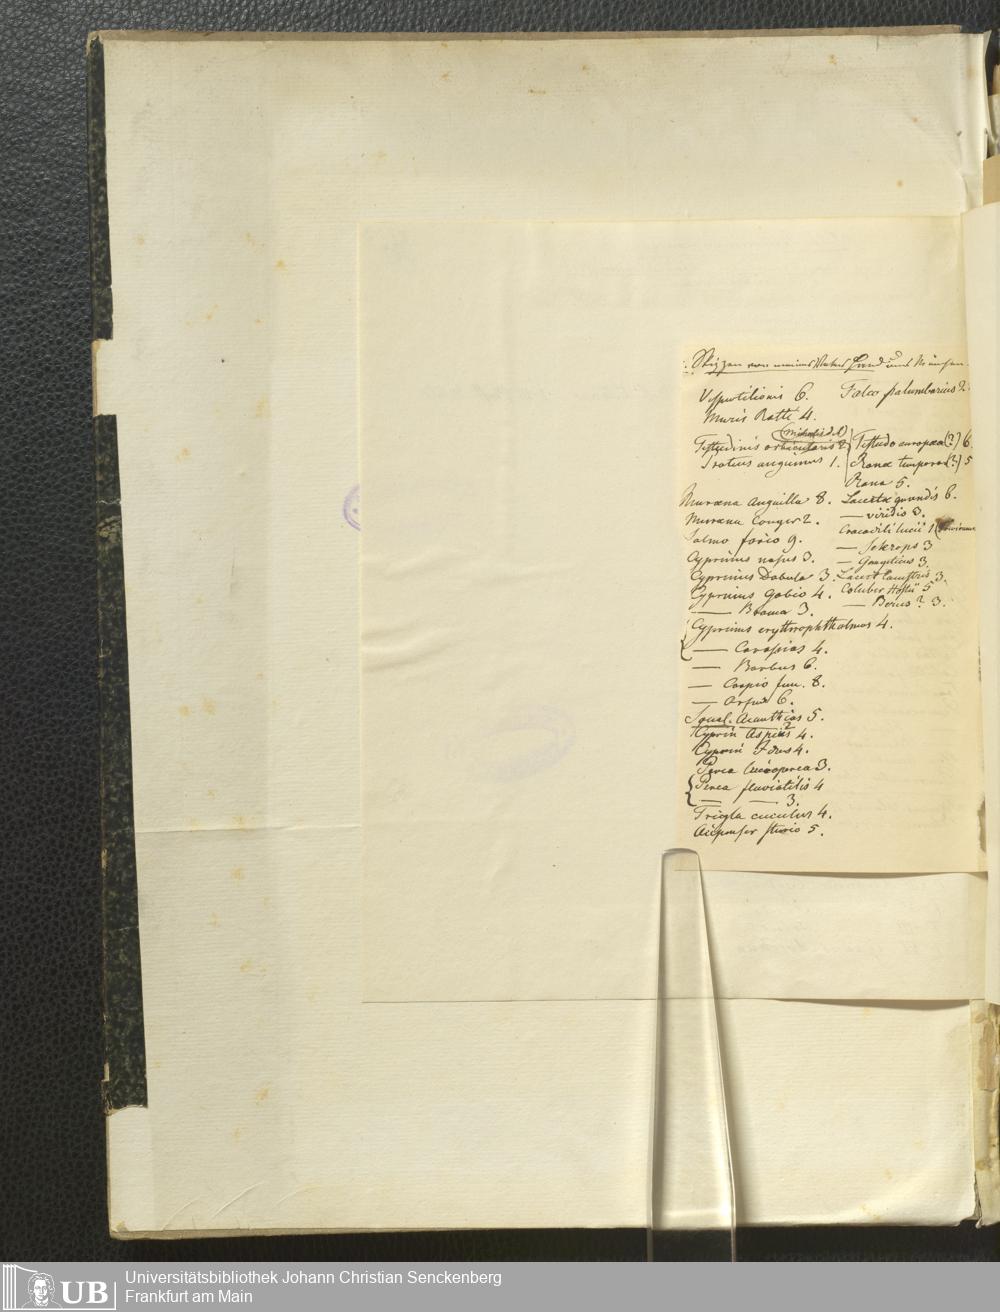 Skizzen von meines Vaters Hand aus München.
Vespertilionis 6.
Muris Ratti 4.
Testudinis orbicularis 2
Muraena Anguilla 8.
Muraena Conger 2.
Salmo fario 9.
Cyprinus nasus 3.
Cyprinus Dobula 3.
Cyprinus Gobio 4.
— Brama 3.
Cyprinus erythrophthalmos 4.
— Carassias 4.
— Barbus 6.
— Carpio fem. 8.
— Orfus 6.
Squal. Acanthias 5.
Cyprin Aspius? 4.
Cyprin Idus 4.
Perca lucioperca 3.
Perca fluviatilis 4
— — 3.
Trigla cuculus 4.
Acipenser sturio 5.
Falco palumbarius 2.
Testudo europaea (?) 6.
Rana temporar (?) 5
Rana 5.
Lacerta 6.
— viridis 3.
Crocodili lucii 1
— Sclerops 3
— Gangeticus 3.
Lacert lacustris 3.
Coluber 5
— Berus? 3.
UB Universitätsbibliothek Johann Christian Senckenberg
Frankfurt am Main